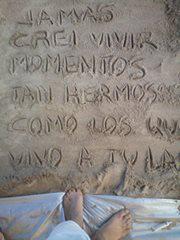 JAMAS
CREI VIVIR
MOMENTOS
TAN HERMOS
COMO LOS QU
VIVO A TU LA